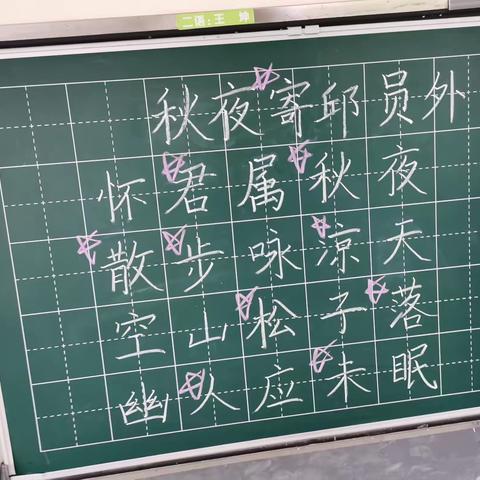 二语:王 坤
秋夜寄邱员外
怀君属秋夜
散步咏凉天
空山松子落
幽人应未眠